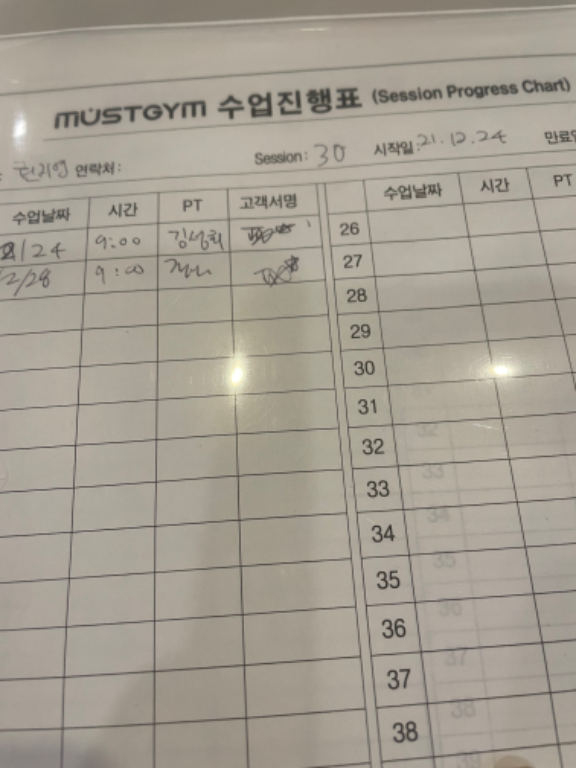 MUSTGYM 수업진행표 (Session Progress Chart)
연락처: Session: 30 시작일: 21.12.24 만료일
수업날짜 시간 PT 고객서명 수업날짜 시간 PT
/24 9:00 26
2/28 9:00 27
28
29
30
31
32
33
34
35
36
37
38